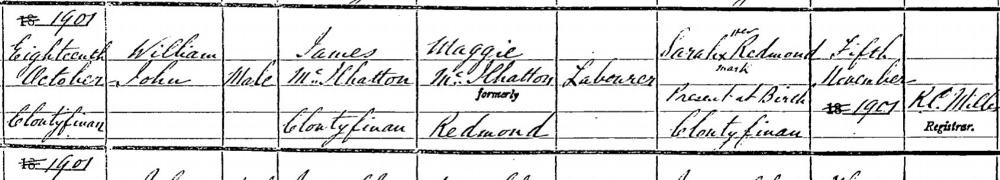 18 1901
Eighteenth William James Maggie Sarah her Redmond Fifth
October John Male McIlhatton McIlhatton Labourer x mark November
formerly Present at Birth 18 1901 R.C. Mills
Clontyfinan Clontyfinan Redmond Clontyfinan Registrar.
18 1901